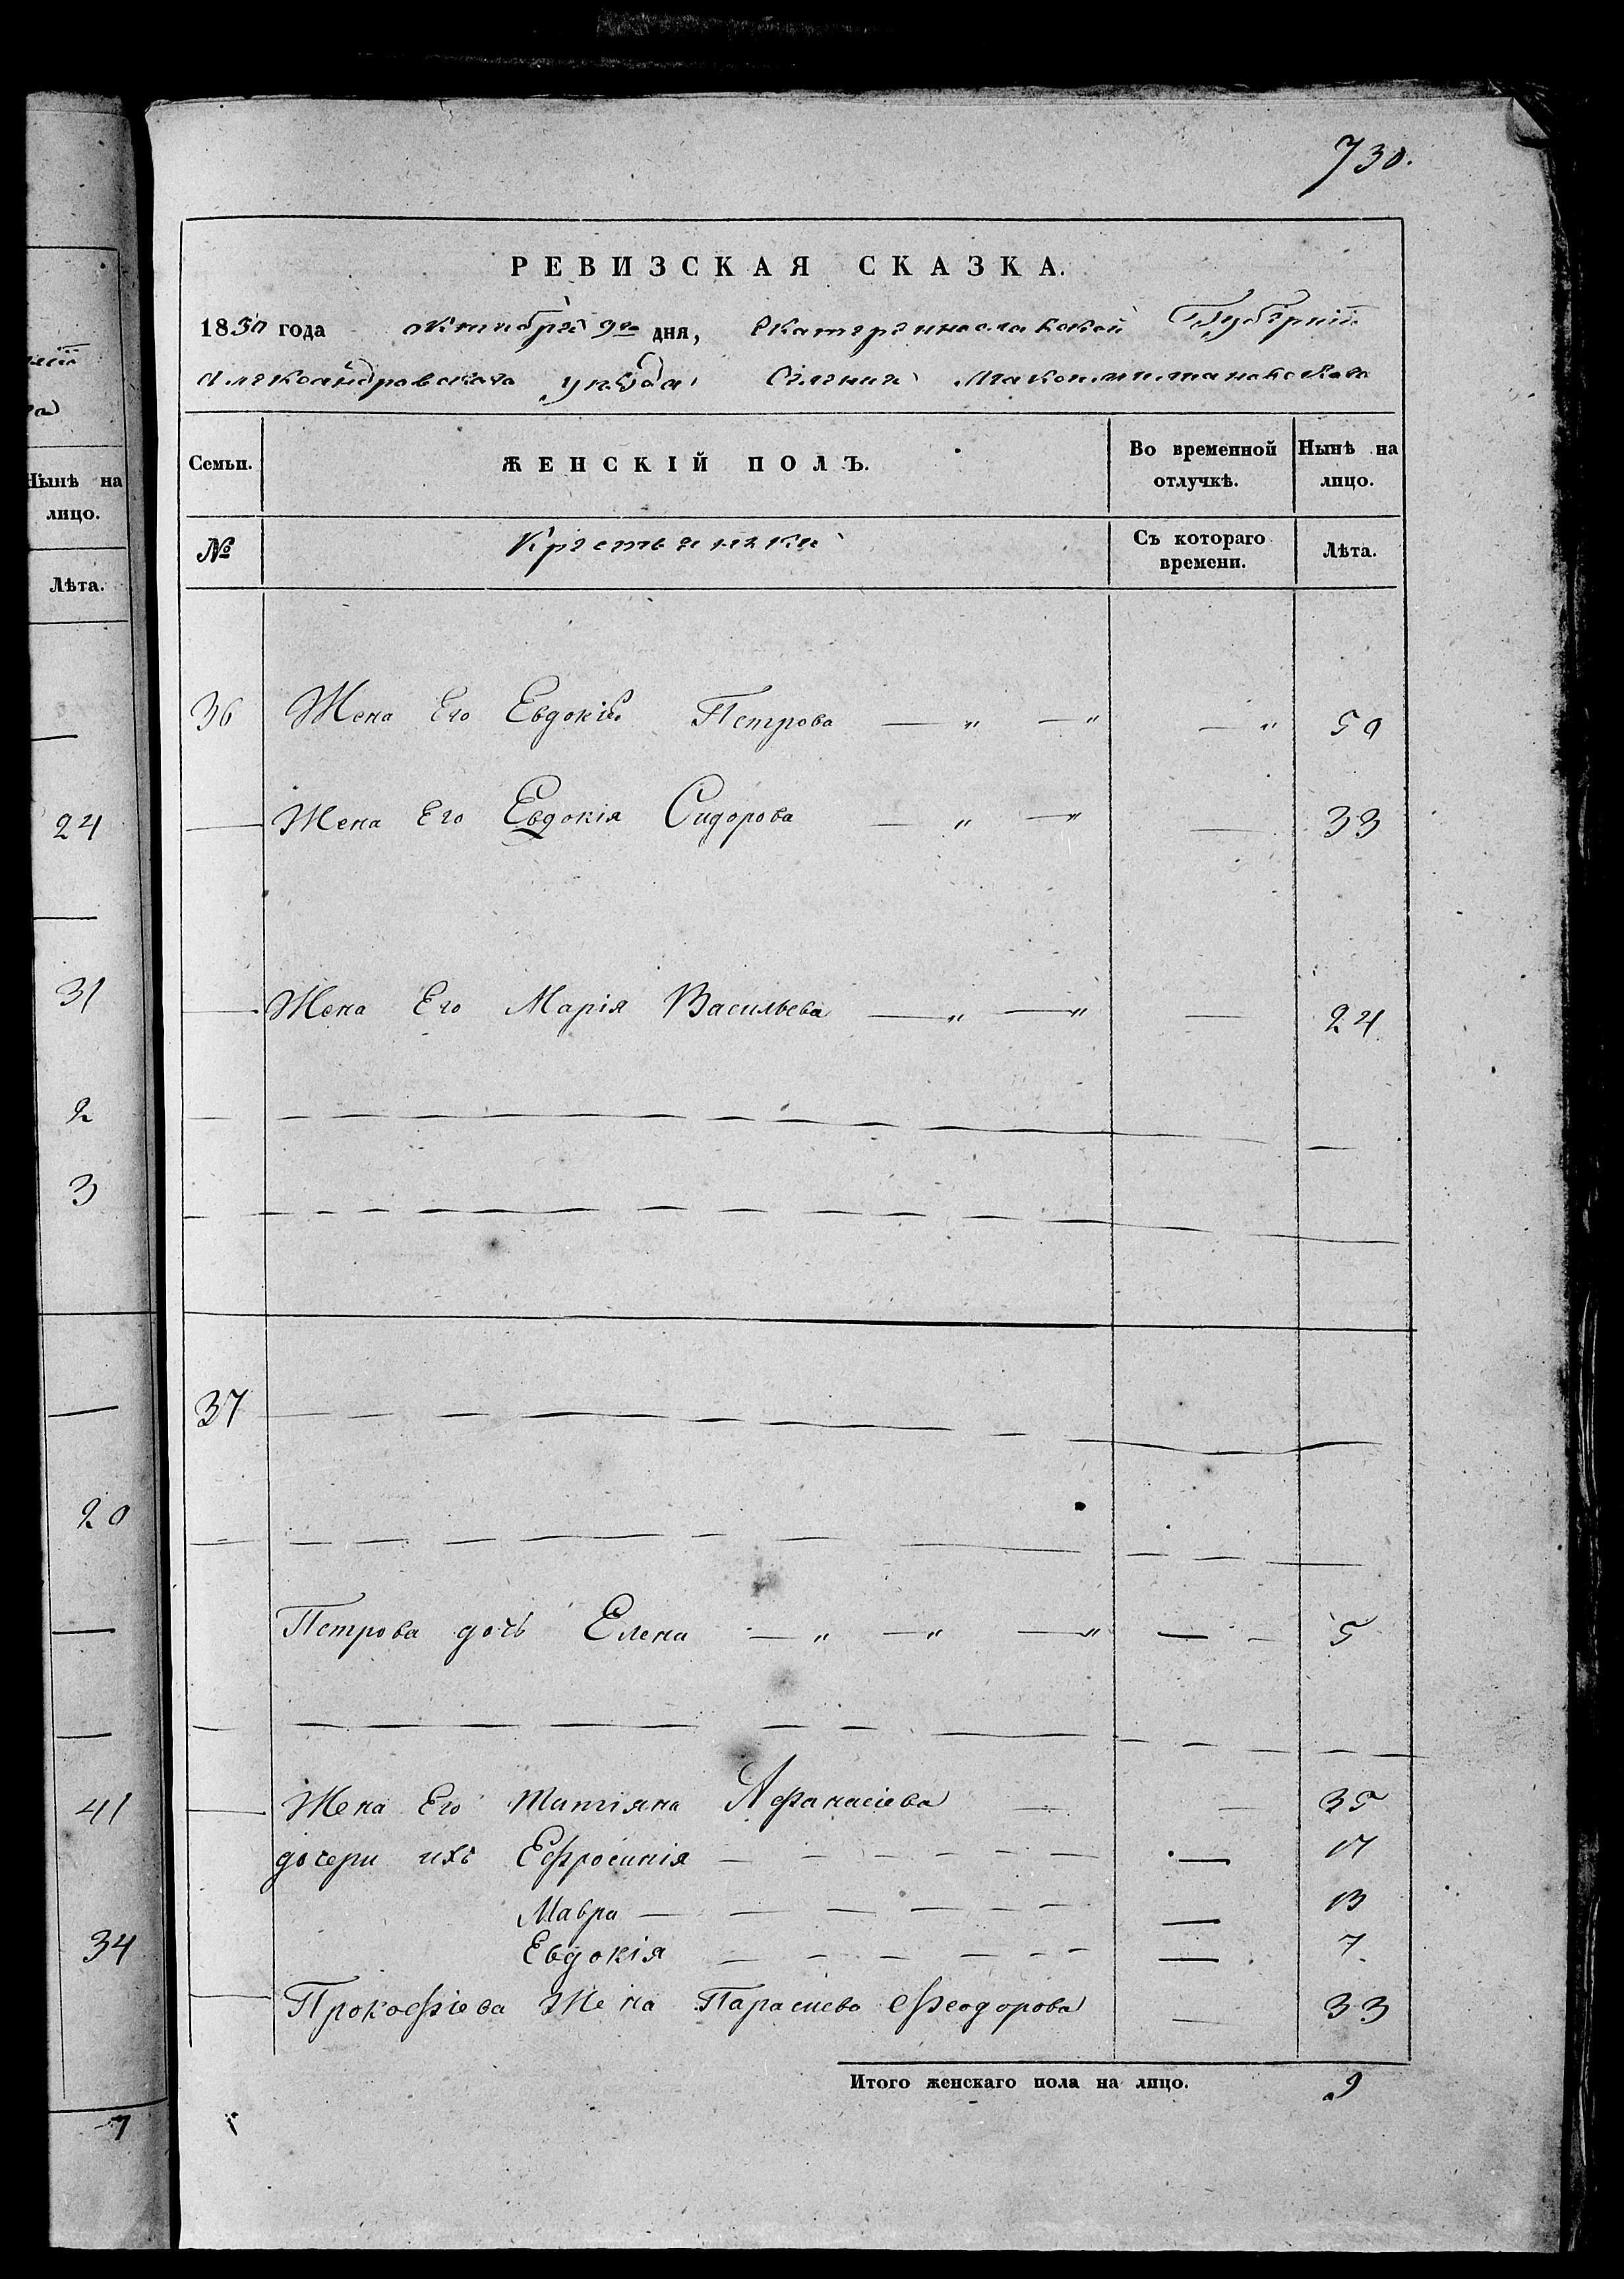 730.
РЕВИЗСКАЯ СКАЗКА.
1850 года октября 9го дня, Екатеринославской Губернии
Александровскаго уезда Селения
Семьи. ЖЕНСКІЙ ПОЛЪ. Во временной отлучкѣ. Нынѣ на лицо.
№ Крестьянки Съ котораго времени. Лѣта.
36 Жена Его Евдокія Петрова — „ — „ — „ 50
— Жена Его Евдокія Сидорова — „ — „ — 33
— Жена Его Марія Васильева — „ — „ — 24
37
Петрова дочь Елена — „ — „ — „ — — 5
— Жена Его Татіяна Афанасіева — — 35
дочери ихъ Ефросинія — 17
Мавра — 13
Евдокія — 7
— Прокофіева Жена Параскева Феодорова — 33
Итого женскаго пола на лицо. 9
Нынѣ на
лицо.
Лѣта.
24
31
2
3
20
41
34
7